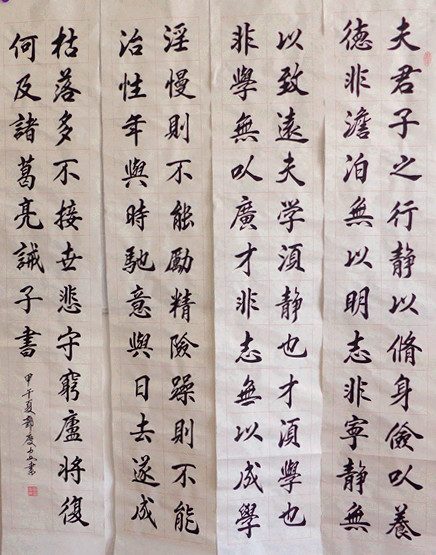 夫君子之行静以脩身儉以養
德非澹泊無以明志非寧静無
以致遠夫学須静也才須學也
非學無以廣才非志無以成學
淫慢則不能勵精險躁則不能
治性年與時馳意與日去遂成
枯落多不接世悲守窮廬將復
何及諸葛亮誡子書
甲午夏